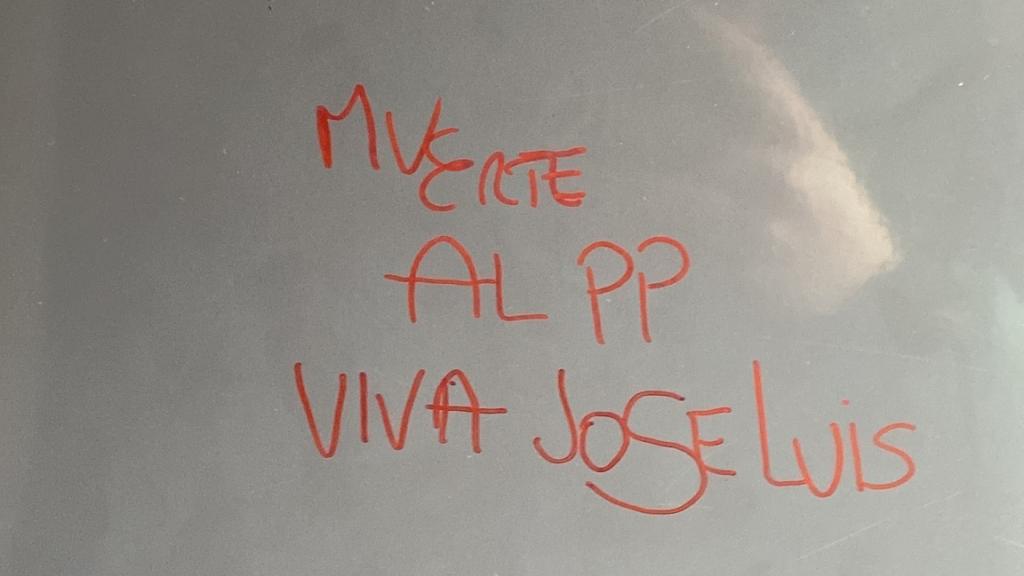 MUERTE
AL PP
VIVA JOSE LUIS